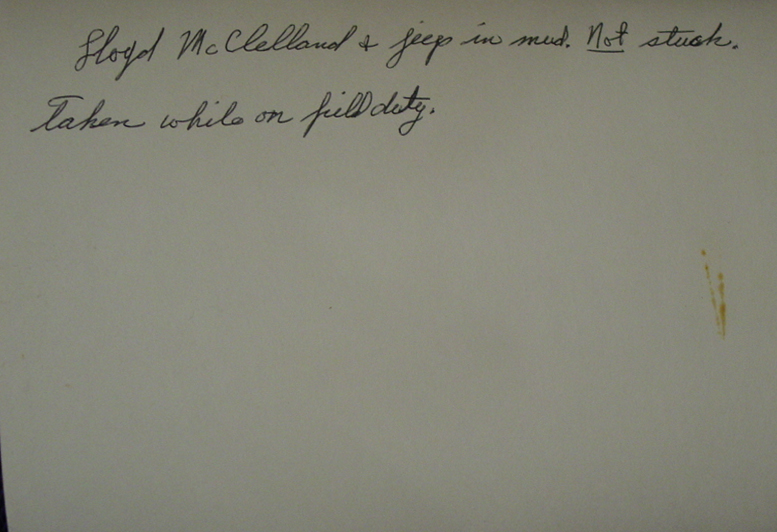 Floyd McClelland & jeep in mud. Not stuck.
Taken while on field duty.